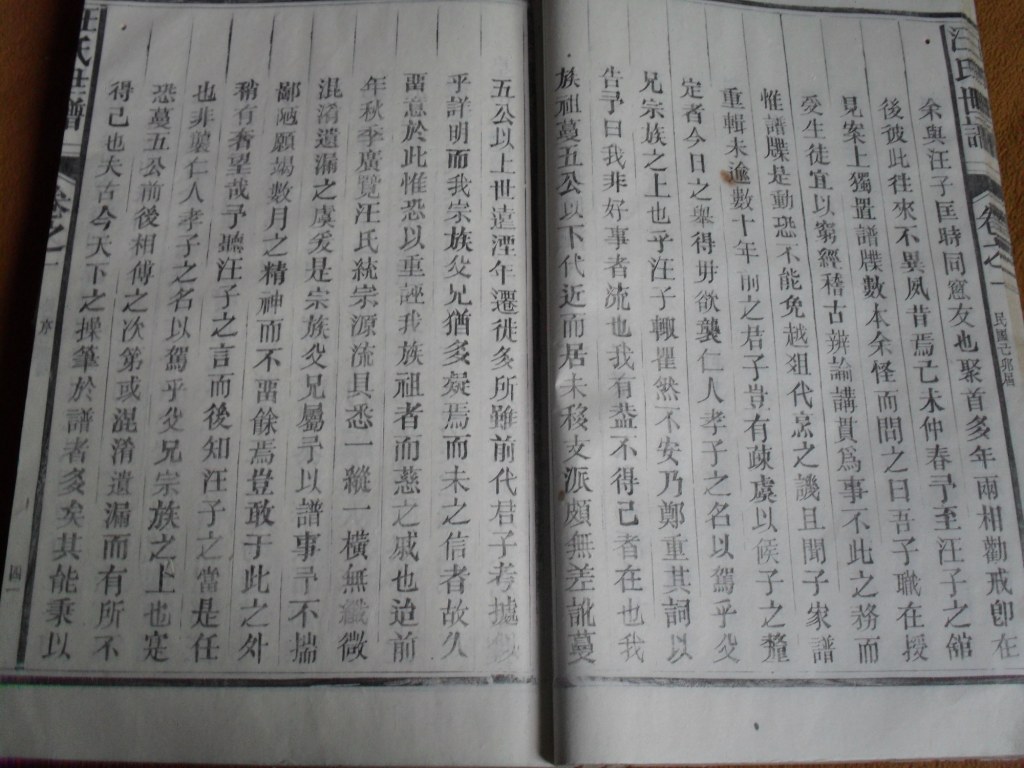 汪氏世譜
卷之一
民國己卯增
余與汪子匡時同窓友也聚首多年兩相勸戒卽在
後彼此往來不異夙昔焉己未仲春予至汪子之舘
見案上獨置譜牒數本余怪而問之曰吾子職在授
受生徒宜以窮經稽古辨論講貫爲事不此之務而
惟譜牒是動恐不能免越俎代烹之譏且聞子家譜
重輯未逾數十年前之君子豈有疎虞以候子之釐
定者今日之舉得毋欲襲仁人孝子之名以駕乎父
兄宗族之上也乎汪子輙瞿然不安乃鄭重其詞以
告予曰我非好事者流也我有葢不得已者在也我
族祖蔓五公以下代近而居未移支派頗無差訛蔓
五公以上世遠湮年遷徙多所難前代君子考據
乎詳明而我宗族父兄猶多疑焉而未之信者故久
畱意於此惟恐以重誣我族祖者而慈之戚也迨前
年秋季廣覽汪氏統宗源流具悉一縱一橫無纖微
混淆遺漏之虞爰是宗族父兄屬予以譜事予不揣
鄙陋願竭數月之精神而不畱餘焉豈敢于此之外
稍有奢望哉予聽汪子之言而後知汪子之當是任
也非襲仁人孝子之名以駕乎父兄宗族之上也寔
恐蔓五公前後相傳之次第或混淆遺漏而有所不
得已也夫古今天下之操筆於譜者多矣其能秉以
汪氏世譜
卷之一
序
四